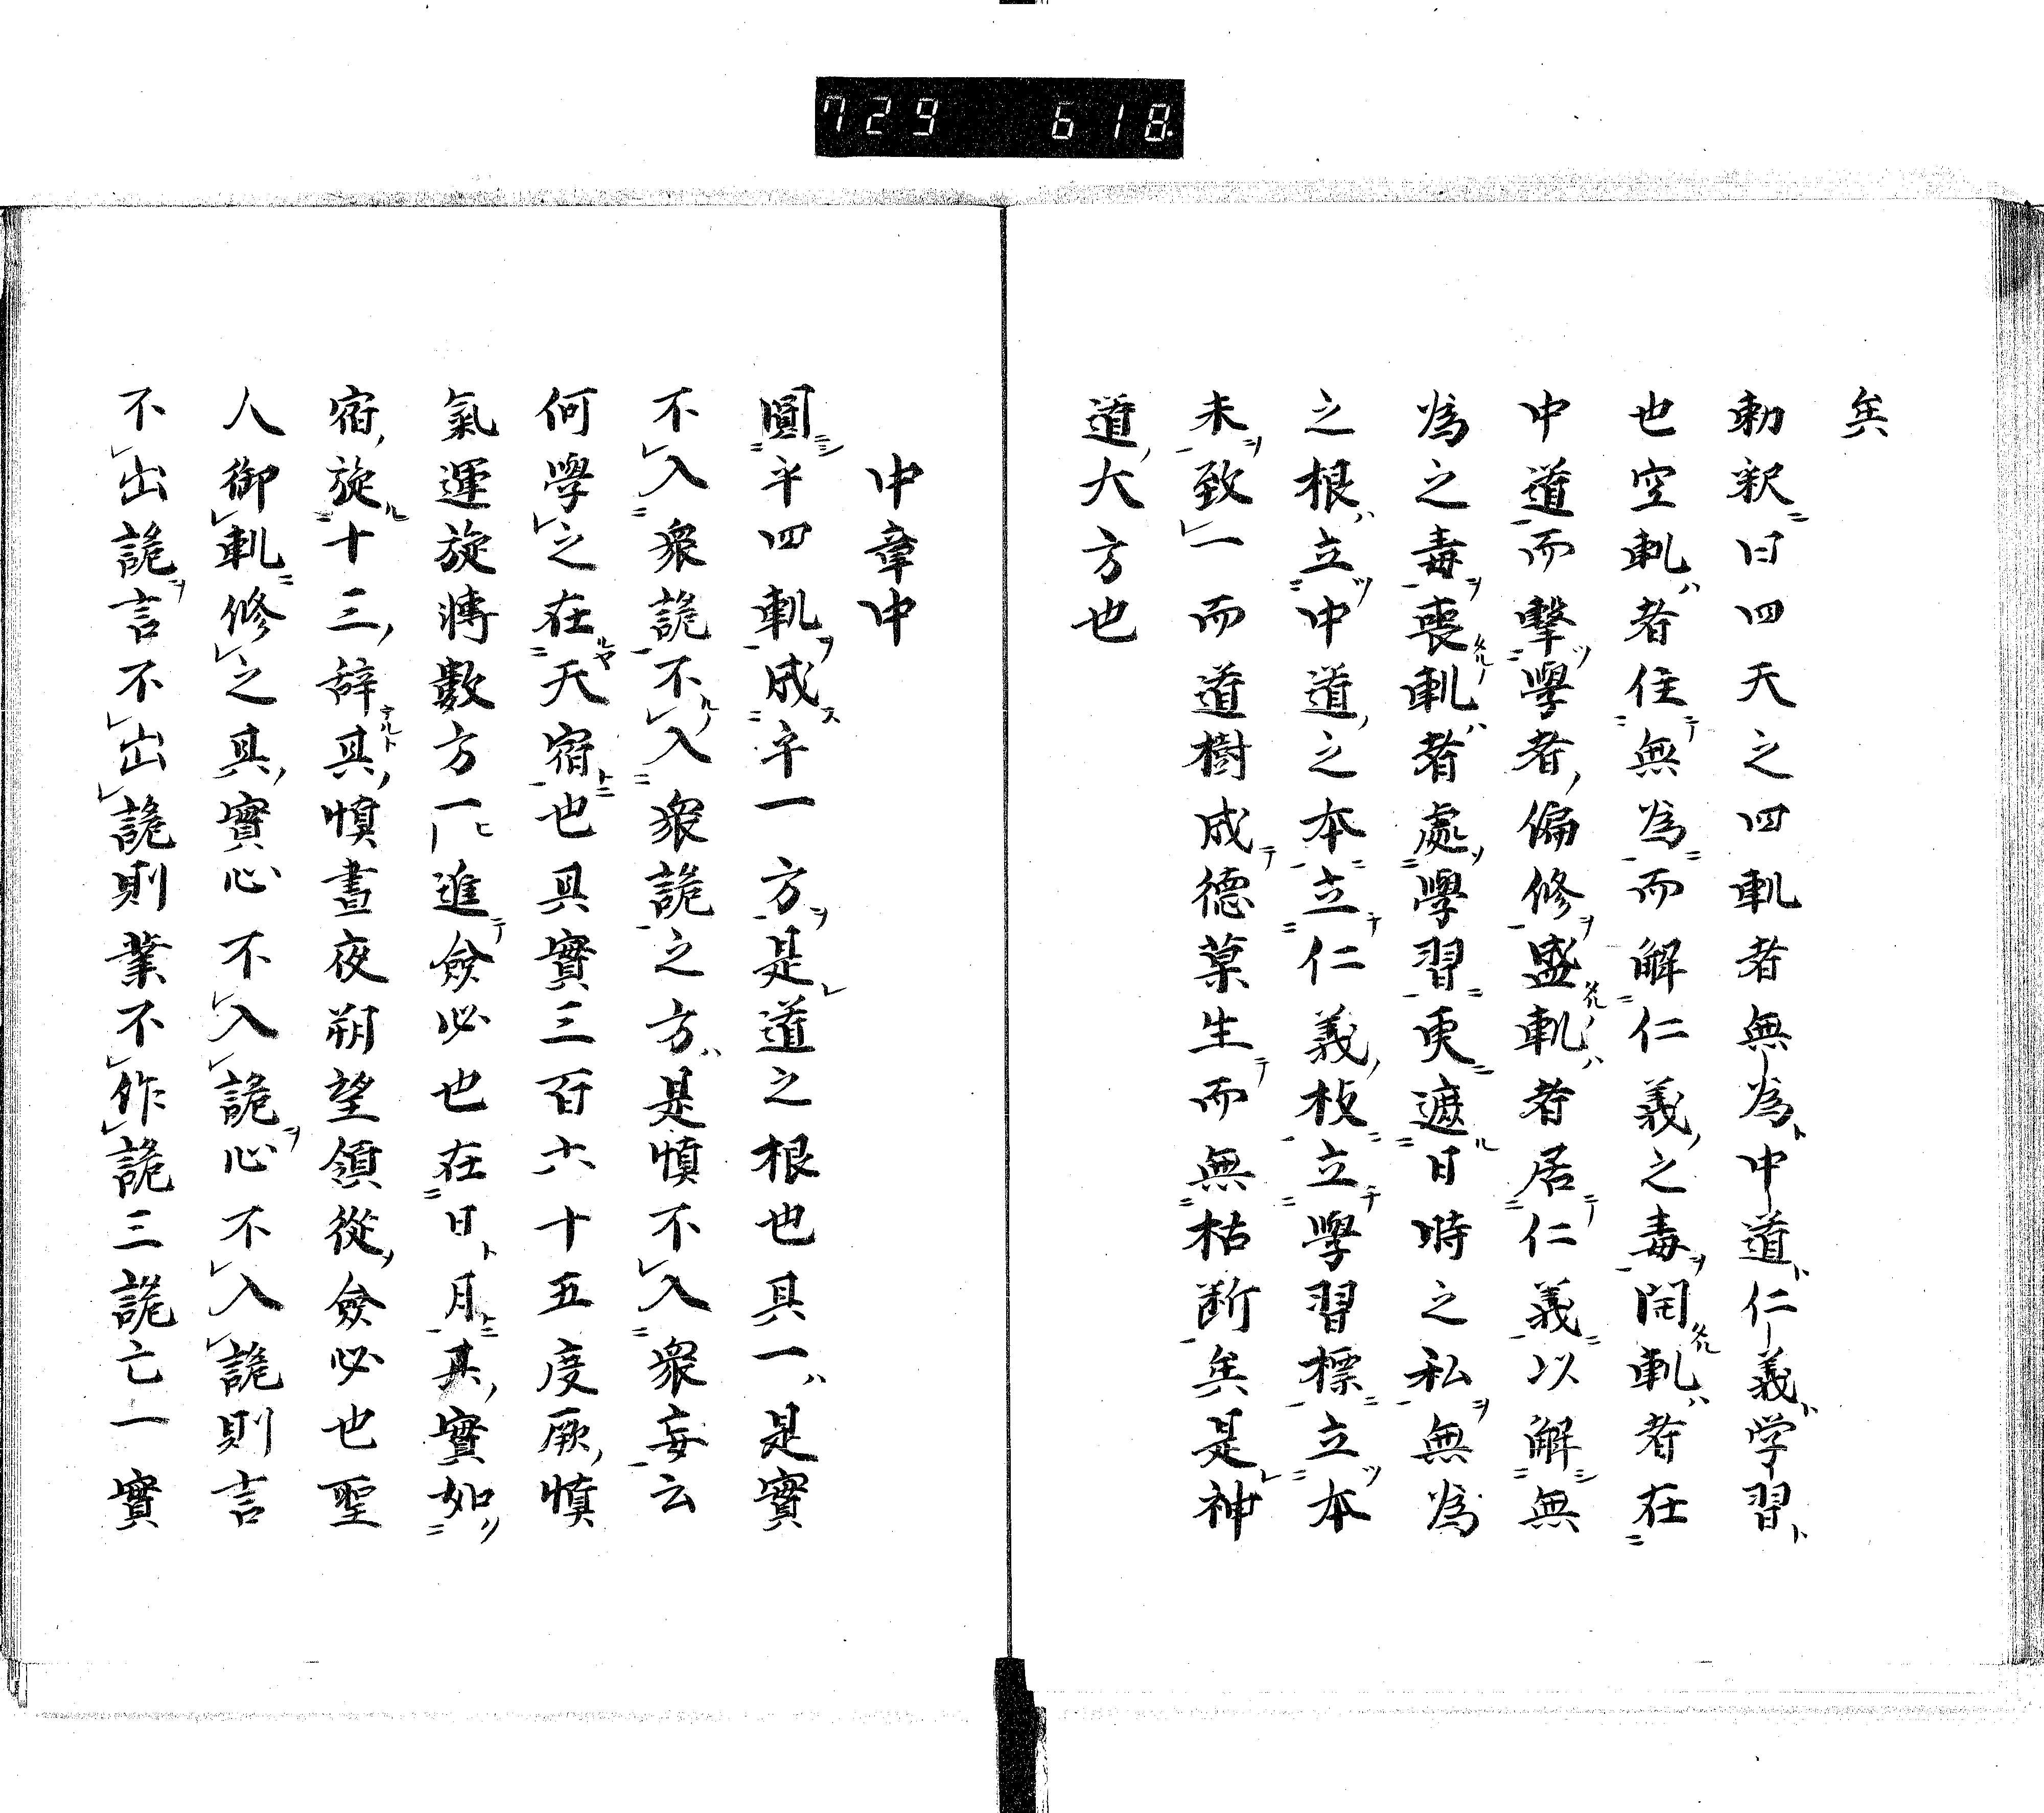 729 618
矣
勅釈曰四天之四軌者無為中道仁義学習
也空軌者住無為而解仁義之毒閙軌者在
中道而擊學者偏修盛軌者居仁義以解無
為之毒喪軌者處學習更遮日時之私無為
之根立中道之本立仁義枝立學習標立本
未致一而道樹成德菓生而無枯断矣是神
道大方也
中章中
圓平四軌成平一方是道之根也具一是實
不入衆詭不入衆詭之方是慎不入衆妄云
何學之在天宿也具實三百六十五度厥慎
氣運旋轉數方一進僉必也在日月其實如
宿旋十三辞其慎晝夜朔望領從僉必也聖
人御軌修之具實心不入詭心不入詭則言
不出詭言不出詭則業不作詭三詭亡一實